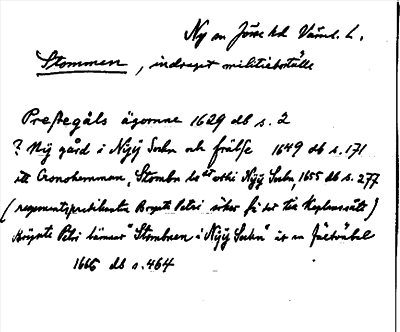 Ny sn Jösse hd Värml. L.
Stommen, indraget militieboställe
Prestegåls ägorne 1629 db s. 2
? Nÿ gård i Nÿÿ Sochn och frälse 1649 db s. 171
itt Cronohemman, Stombn uthi Nÿÿ Sochn, 1655 db s. 277
(regementspredikanten Börgete Petri söker få det till
Börgete Petri lämnar "Stombnen i Nÿÿ Sochn" är en
1665 db s. 464